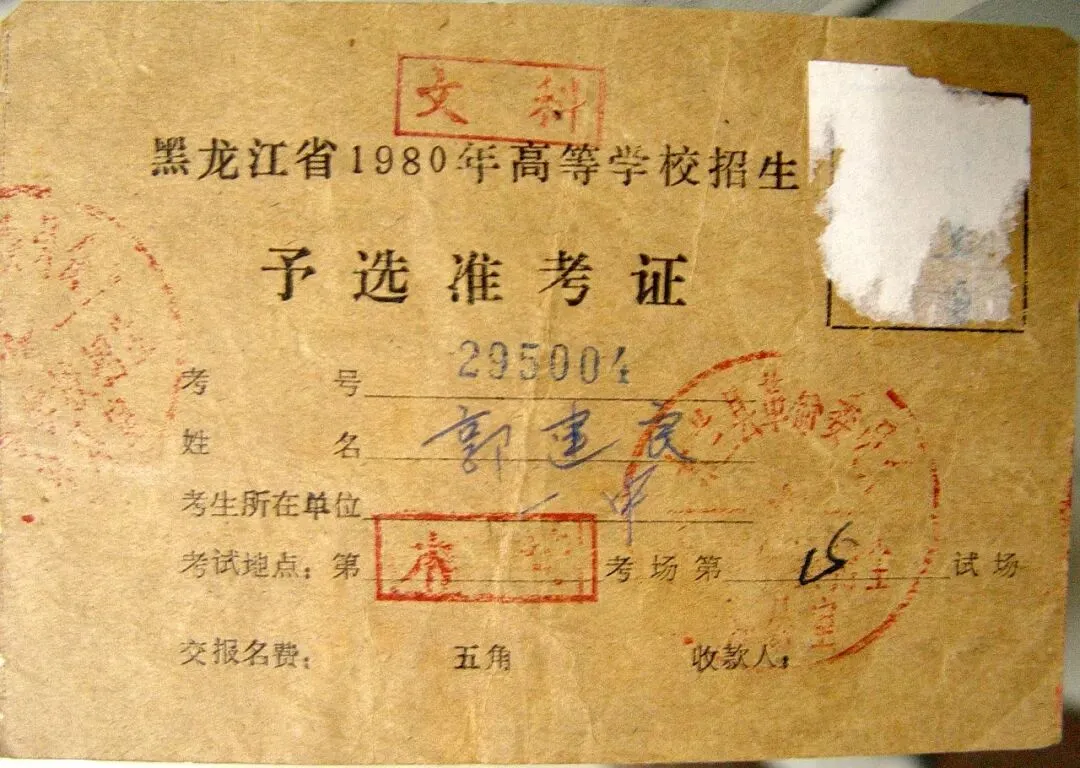 文科
黑龙江省1980年高等学校招生
予选准考证
考号 295004
姓名 郭建良
考生所在单位 一中
考试地点：第 考场第 15 试场
交报名费： 五角 收款人：
县革命委